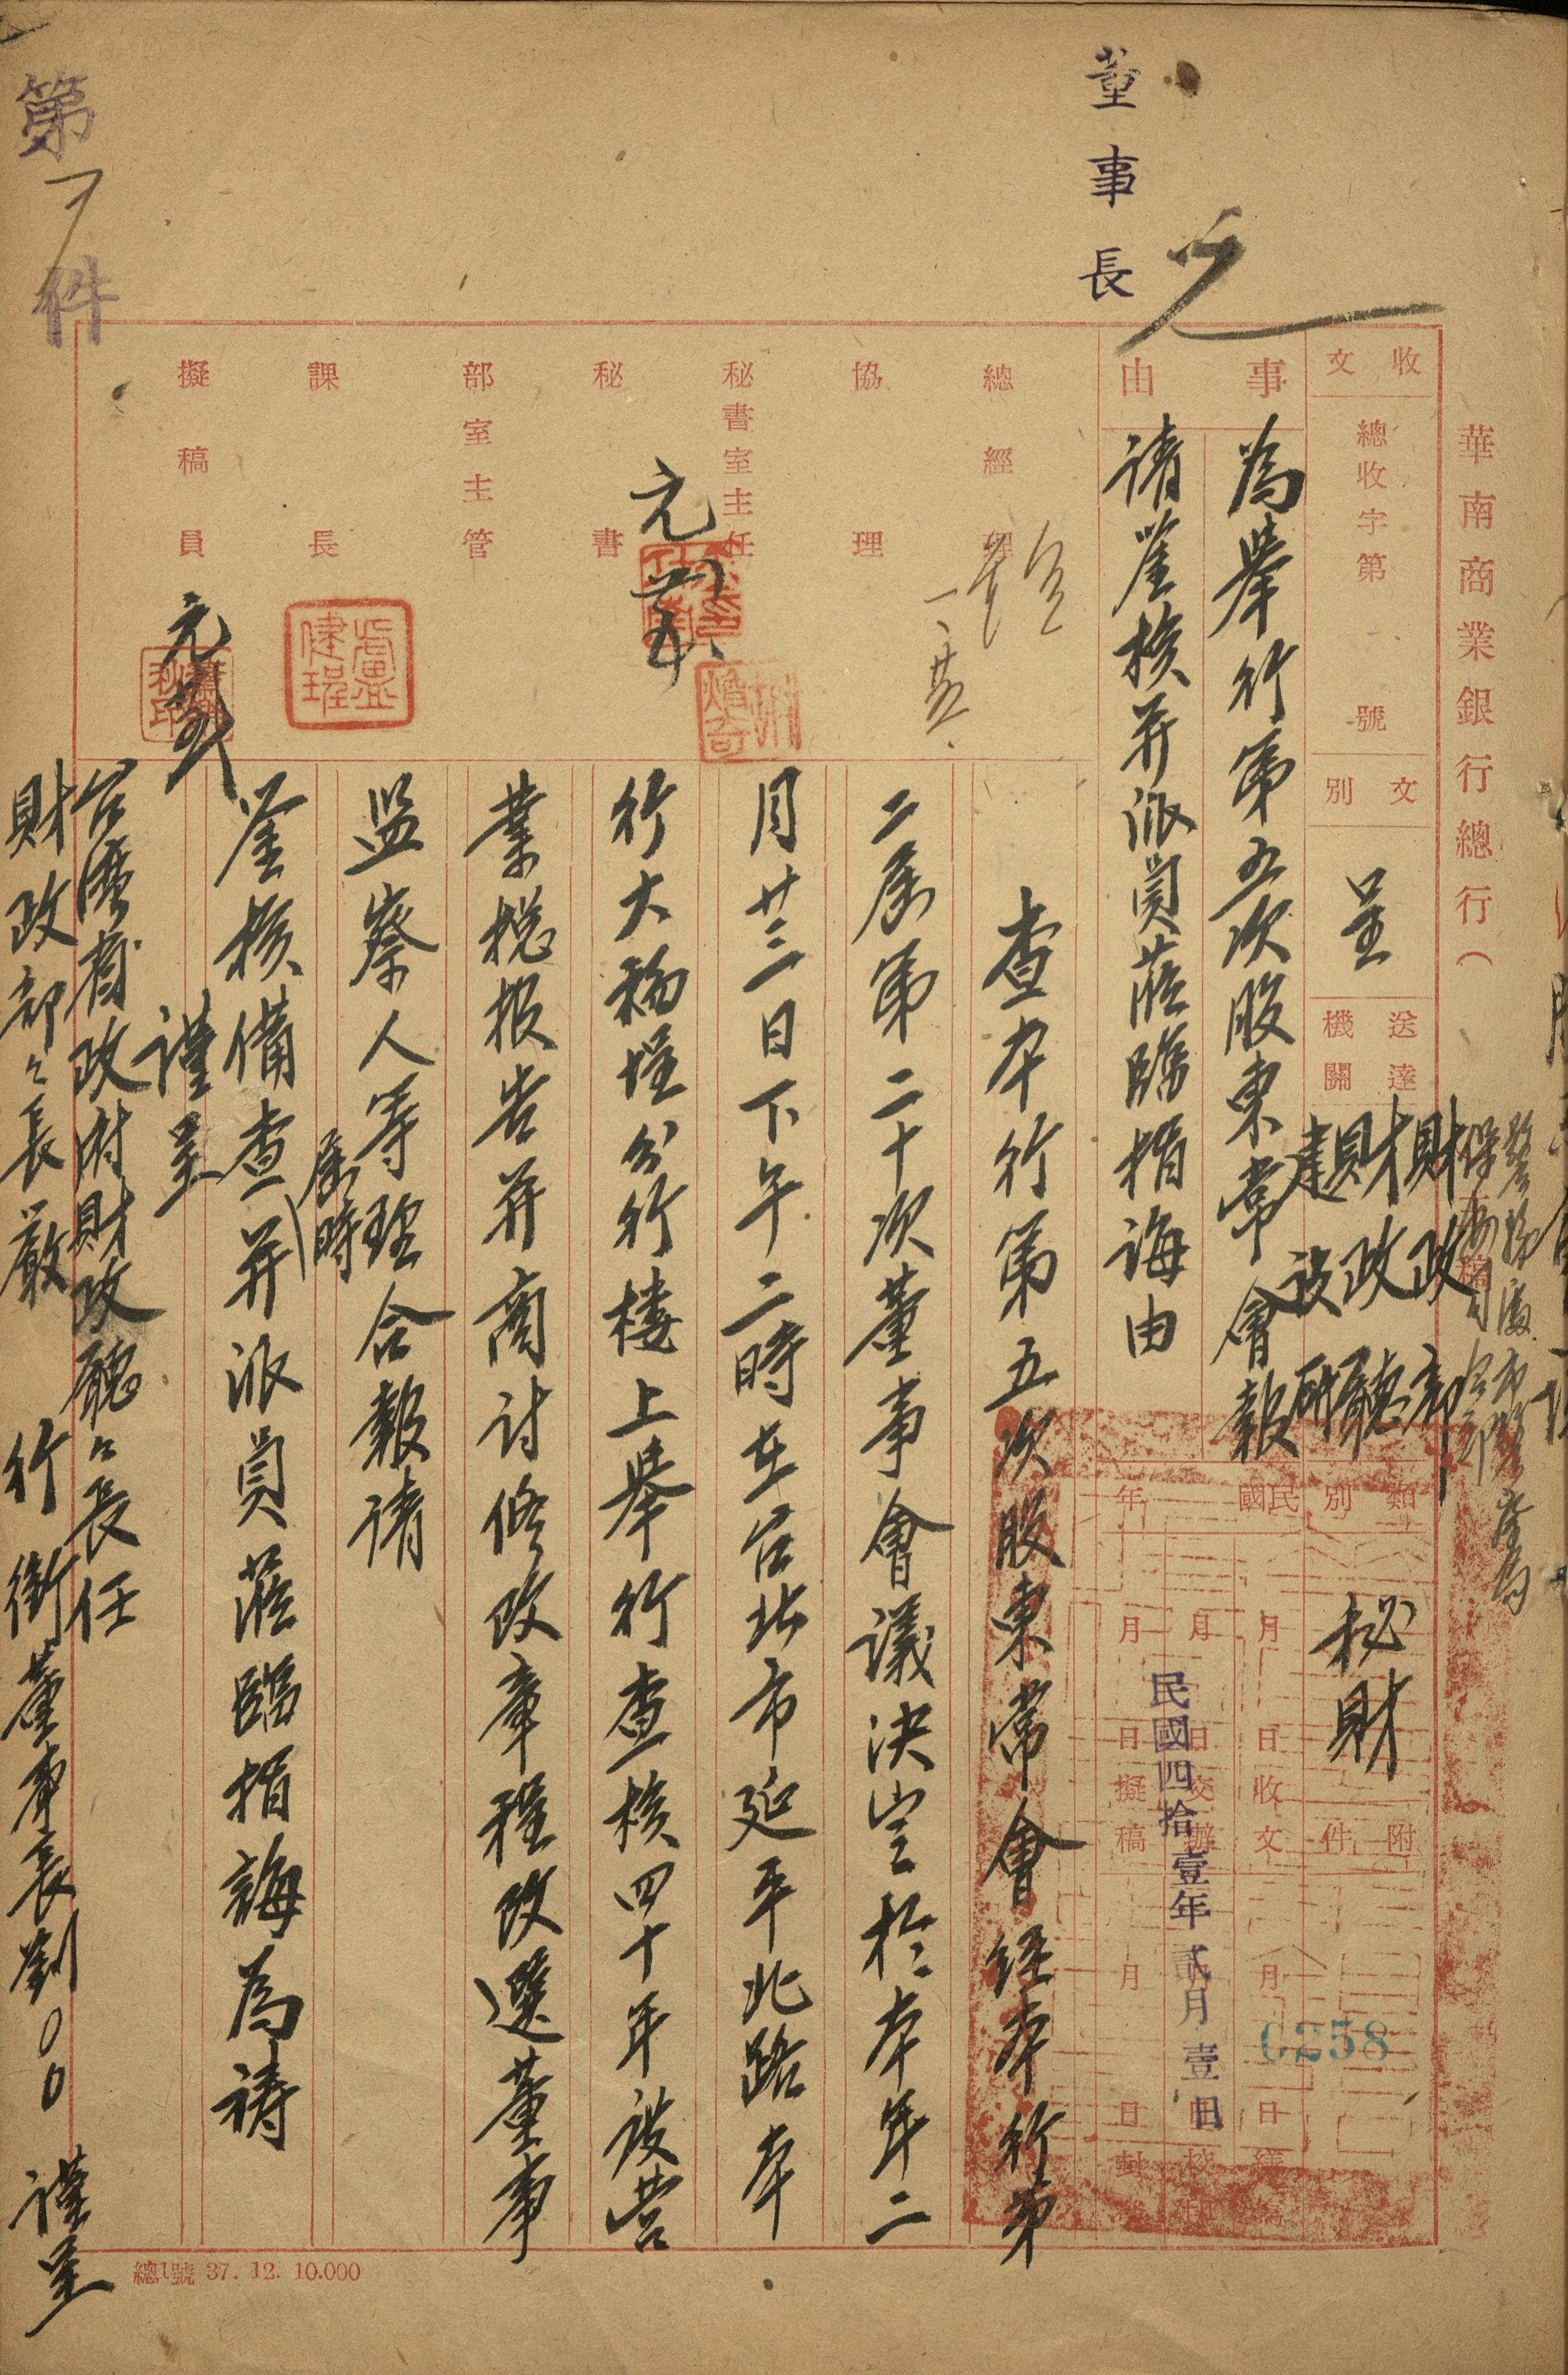 華南商業銀行總行(
稿
收文
總收字第
號
文別
呈
送達機關
財政部
財政廳
建設廳
類別
秘財
附件
0258
董事長
事由
為舉行第五次股東常會報
請鑒核并派員蒞臨指誨由
民國
年
月日收文
月日交辦
月日擬稿
月日繕寫
月日校對
月日封發
民國四拾壹年貳月壹日
總經理
協理
秘書室主任
秘書
部室主管
課長
擬稿員
查本行第五次股東常會經本行第
二屆第二十次董事會議決定於本年二
月廿三日下午二時在台北市延平北路本
行大稻埕分行樓上舉行查核四十年設營
業總報告并商討修改章程改選董事
監察人等理合報請
屆時
鑒核備查并派員蒞臨指誨為禱
謹呈
台灣省政府財政廳廳長任
財政部部長嚴
行銜董事長劉〇〇謹呈
第 件
總1號 37. 12. 10.000